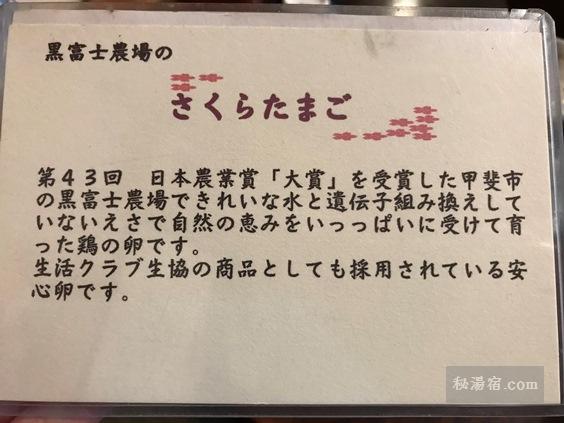 黒富士農場の
さくらたまご
第４３回　日本農業賞「大賞」を受賞した甲斐市
の黒富士農場できれいな水と遺伝子組み換えして
いないえさで自然の恵みをいっっぱいに受けて育
った鶏の卵です。
生活クラブ生協の商品としても採用されている安
心卵です。
秘湯宿.com